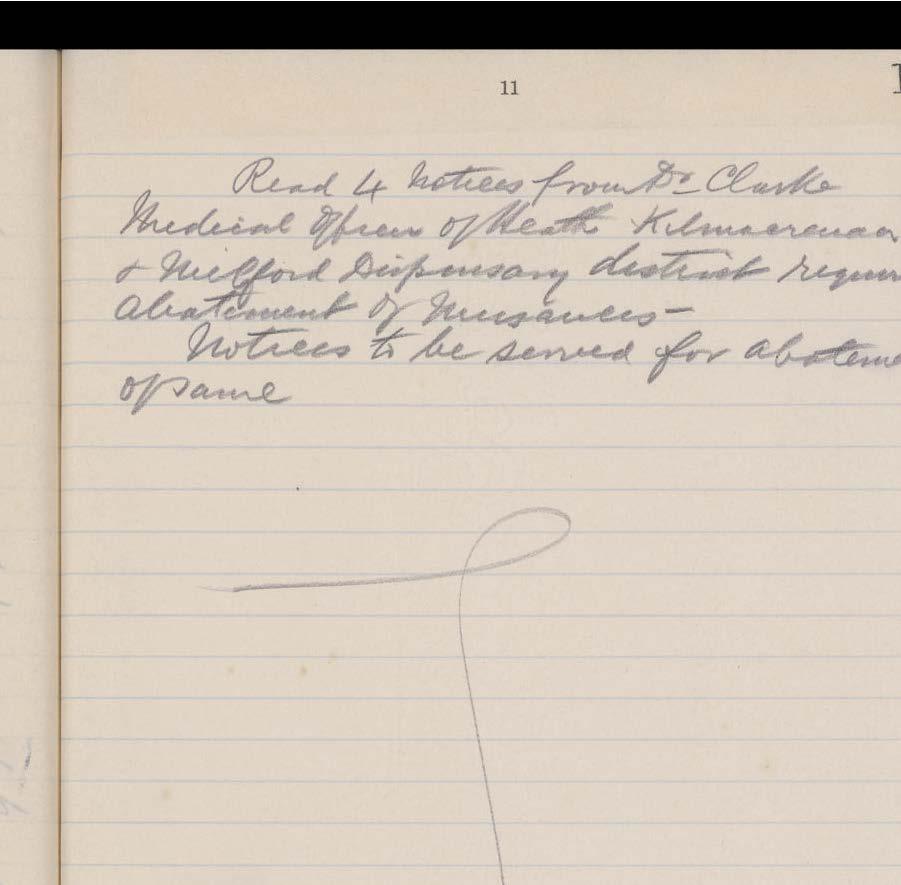 11
Read 4 Notices from Dr Clarke
Medical Officer of Health Kilmacrenan
& Milford Dispensary district requir
Abatement of Nuisances -
Notices to be served for abateme
of same